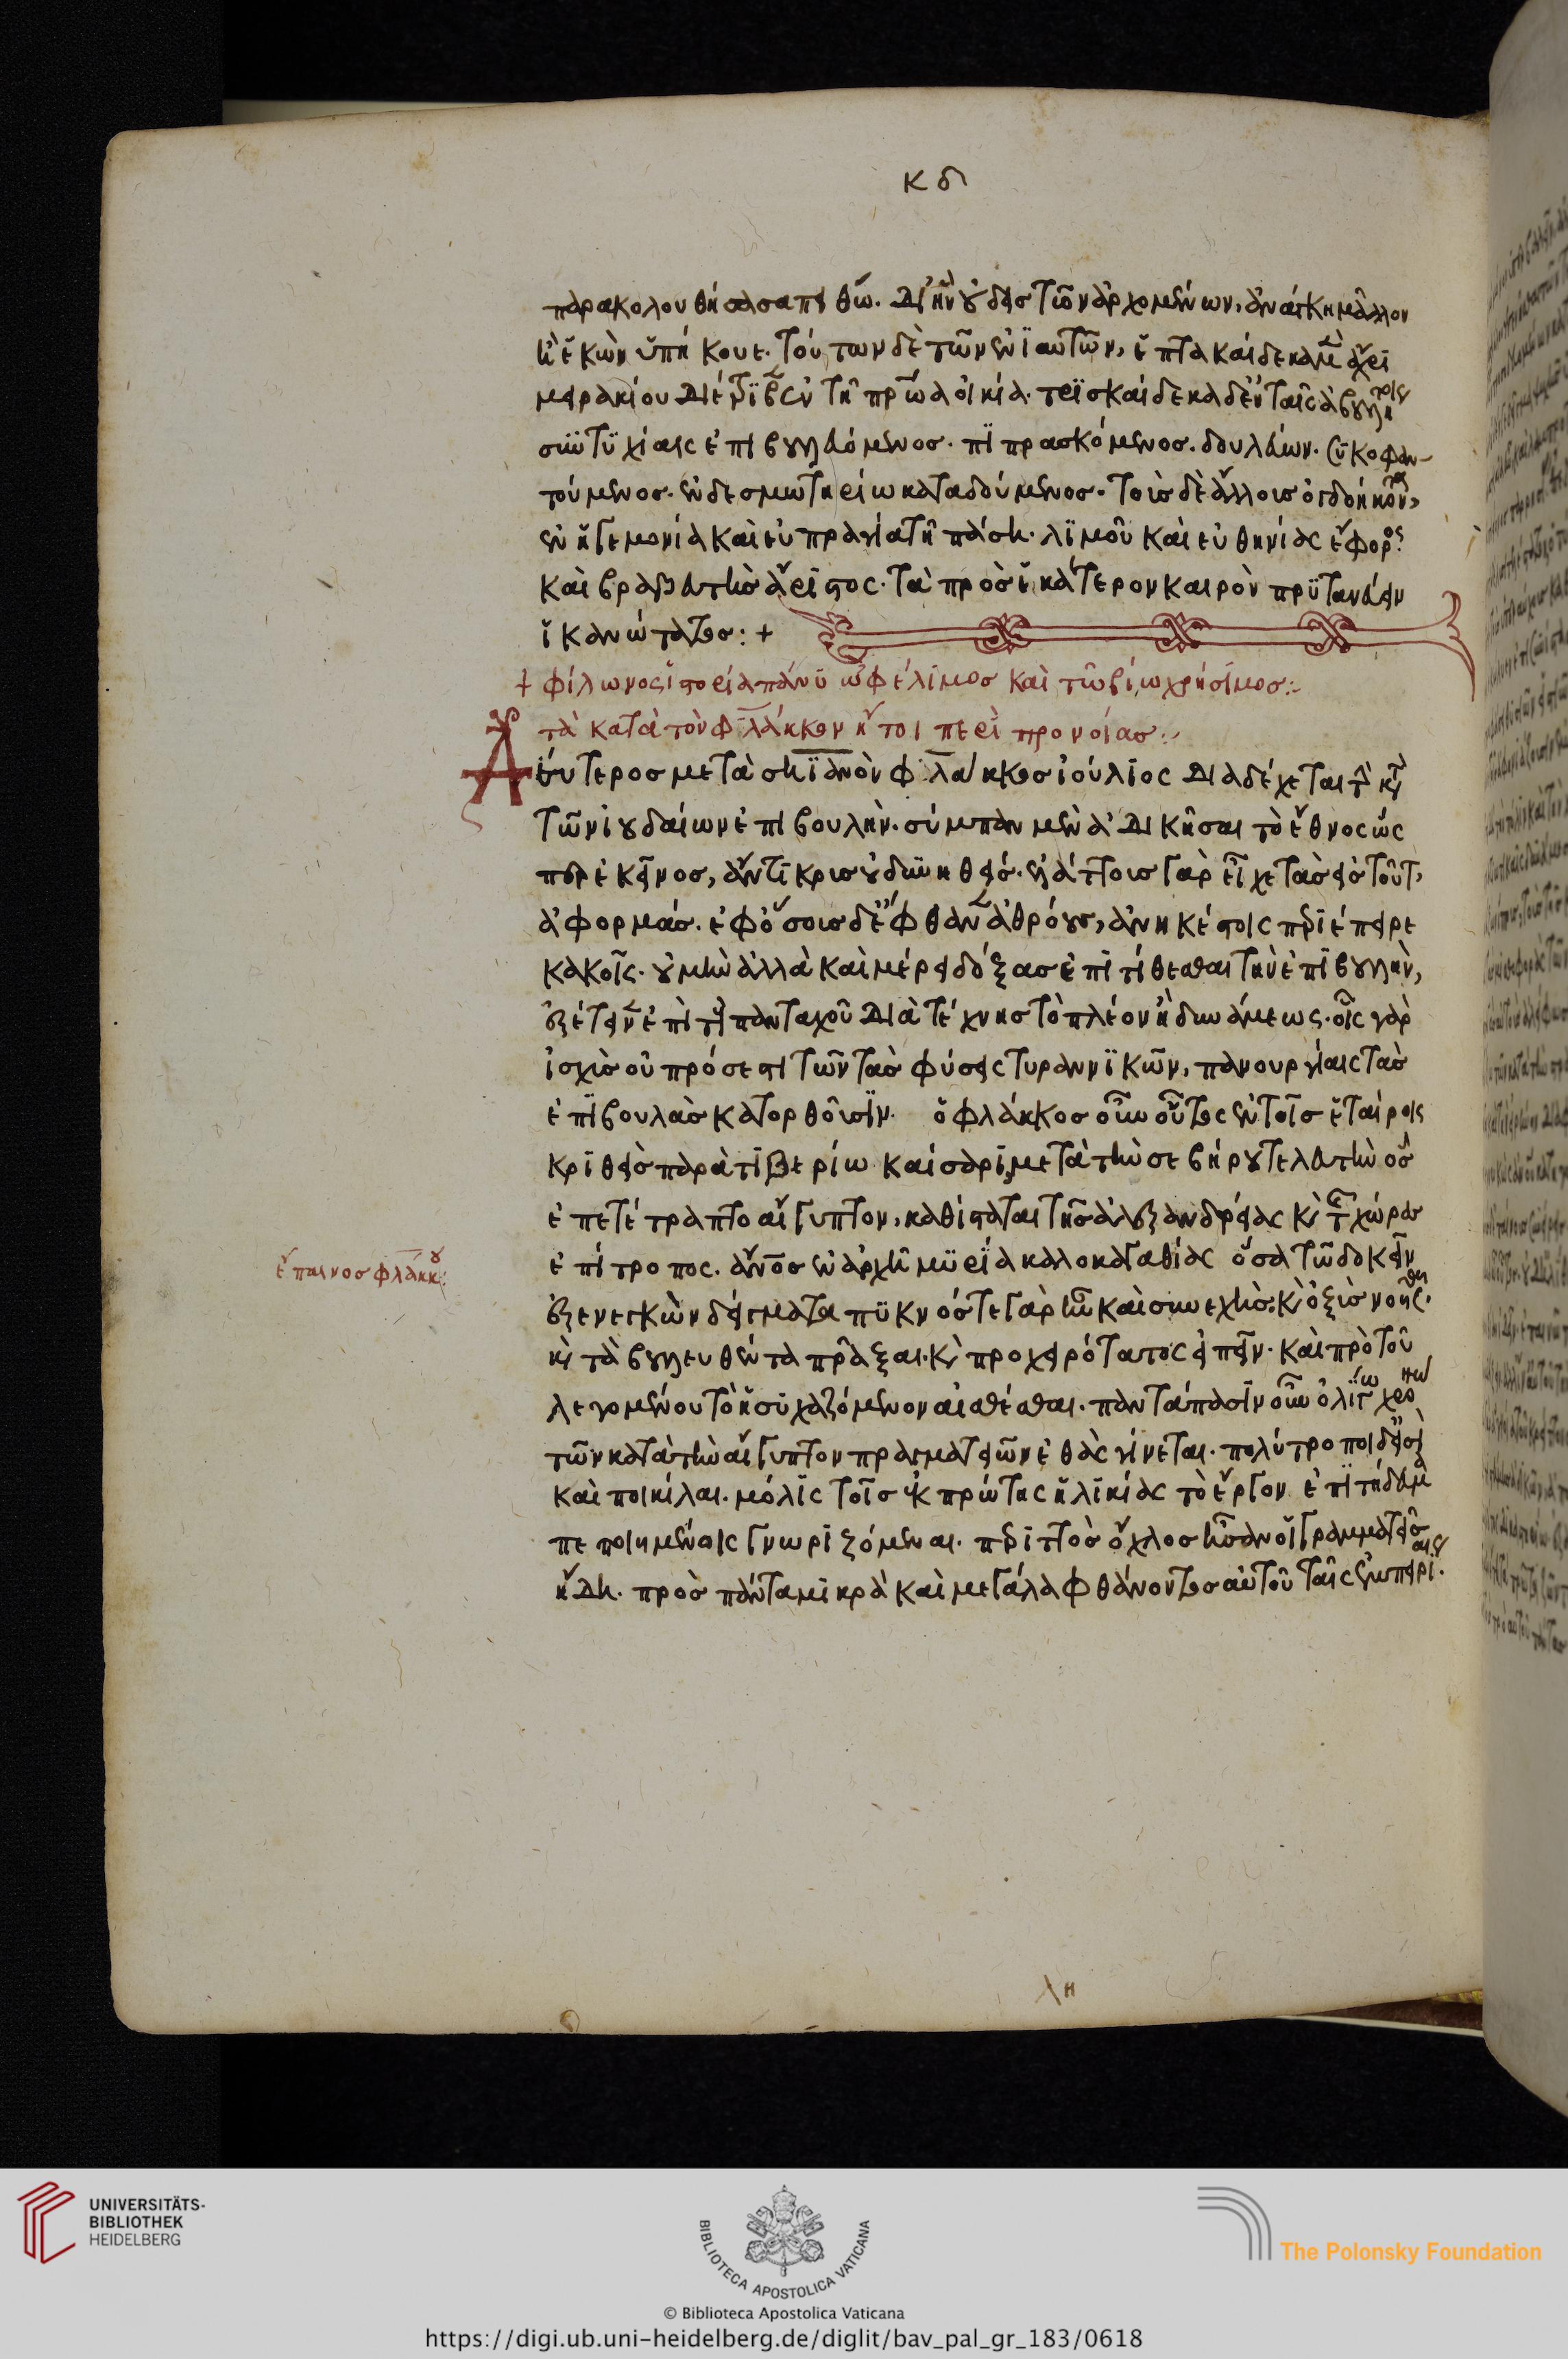 κδ
παρακολουθήσασα πειθώ. δι' ἣν οὐδεὶς τῶν ἀρχομένων, ἀνάγκη μᾶλλον
ἢ ἑκὼν ὑπήκουε. τούτων δὲ τῶν ἐνϊαυτῶν, ἑπτακαίδεκα μὲν ἄχρι
μειρακίου διέτριβεν ἐν τῆ πρώα οἰκία. τρϊσκαίδεκα δ' ἐν ταῖς ἀβουλήτοις
συντϋχίαις ἐπιβουλευόμενος. πϊπρασκόμενος. δουλεύων. συκοφαν-
τούμενος. ἐν δεσμωτηρίω καταδούμενος. τοῖς δὲ ἄλλοις ὀγδοήκοντα,
ἐν ἡγεμονία καὶ εὐπραγία τῆ πάση. λϊμοῦ καὶ εὐθηνίας ἔφορος
καὶ βραβευτὴς ἄριστος. τὰ πρὸς ἑκάτερον καιρὸν πρϋτανεύειν
ἱκανώτατος: +
+ φίλωνος ἱστορία πάνϋ ὠφέλιμος καὶ τῶ βίω χρήσιμος:-
τὰ κατὰ τὸν φλάκκον ἤτοι περὶ προνοίας:-
Δεύτερος μετὰ σηϊανὸν φλάκκος ἰούλϊος διαδέχεται τὴν κατὰ
τῶν ἰουδαίων ἐπιβουλὴν. σύμπαν μὲν ἀδικῆσαι τὸ ἔθνος ὥς
περ ἐκεῖνος, ἄντικρις οὐ δυνηθείς. ἐλάττοις γὰρ εἶχε τὰς εἰς τοῦτ'
ἀφορμάς. ἐφ' ὅσοις δὲ ἔφθανεν ἀθρόους, ἀνηκέστοις περιέπειρε
κακοῖς. οὐ μὴν ἀλλὰ καὶ μέρει δόξας ἐπιτίθεσθαι τὴν ἐπιβουλὴν,
ἐξέτεινεν ἐπὶ πάντας πανταχοῦ διὰ τέχνης τὸ πλέον ἢ δυνάμεως. οἷς γὰρ
ἰσχὺς οὐ πρόσεστι τῶν τὰς φύσεις τυραννϊκῶν, πανουργίαις τὰς
ἐπϊβουλὰς κατορθοῦσϊν. ὁ φλάκκος οὖν οὗτος ἐν τοῖς ἑταίροις
κρϊθεὶς παρὰ τϊβερίω καίσαρι, μετὰ τὴν σεβήρου τελευτὴν ὃς
ἐπετέτραπτο αἴγυπτον, καθίσταται τῆς ἀλεξανδρείας καὶ τῆς χώρας
ἐπίτροπος. ἄνθρωπος ἐν ἀρχῆ μϋρία καλοκἀγαθίας ὅσα τῶ δοκεῖν
ἐξενεγκὼν δείγματα πϋκνός τε γὰρ ἦν καὶ συνεχὴς. καὶ ὀξὺς νοηθῆναι.
καὶ τὰ βουλευθέντα πρᾶξαι. καὶ προχειρότατος εἰπεῖν. καὶ πρὸ τοῦ
λεγομένου τὸ ἡσϋχαζόμενον αἰσθέσθαι. παντάπασϊν οὖν ὀλίγω χρόνω
τῶν κατὰ τὴν αἴγυπτον πραγματειῶν ἐθὰς γίνεται. πολύτροποι δ' εἰσὶ
καὶ ποικίλαι. μόλϊς τοῖς ἐκ πρώτης ἡλϊκίας τὸ ἔργον ἐπϊτήδευμα
πεποιημένοις γνωριζόμεναι. περιττὸς ὄχλος ἦσαν οἱ γραμματεῖς
ἤδη. πρὸς πάντα μϊκρὰ καὶ μεγάλα φθάνοντος αὐτοῦ ταῖς ἐμπειρίαις.
ἔπαινος φλάκκου:
λη
UNIVERSITÄTS-
BIBLIOTHEK
HEIDELBERG
BIBLIOTECA APOSTOLICA VATICANA
The Polonsky Foundation
© Biblioteca Apostolica Vaticana
https://digi.ub.uni-heidelberg.de/diglit/bav_pal_gr_183/0618